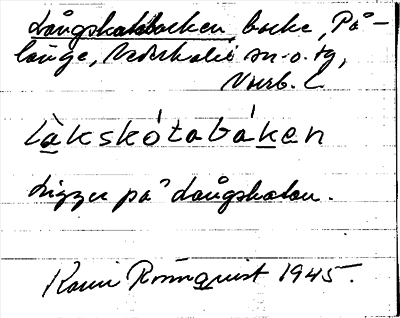 Långskatabacken, backe, På-
länge, Nederkalix sn. o. tg,
Norrb. l.
làkskótabáken
Ligger på Långskatan.
Karin Rönnquist 1945.